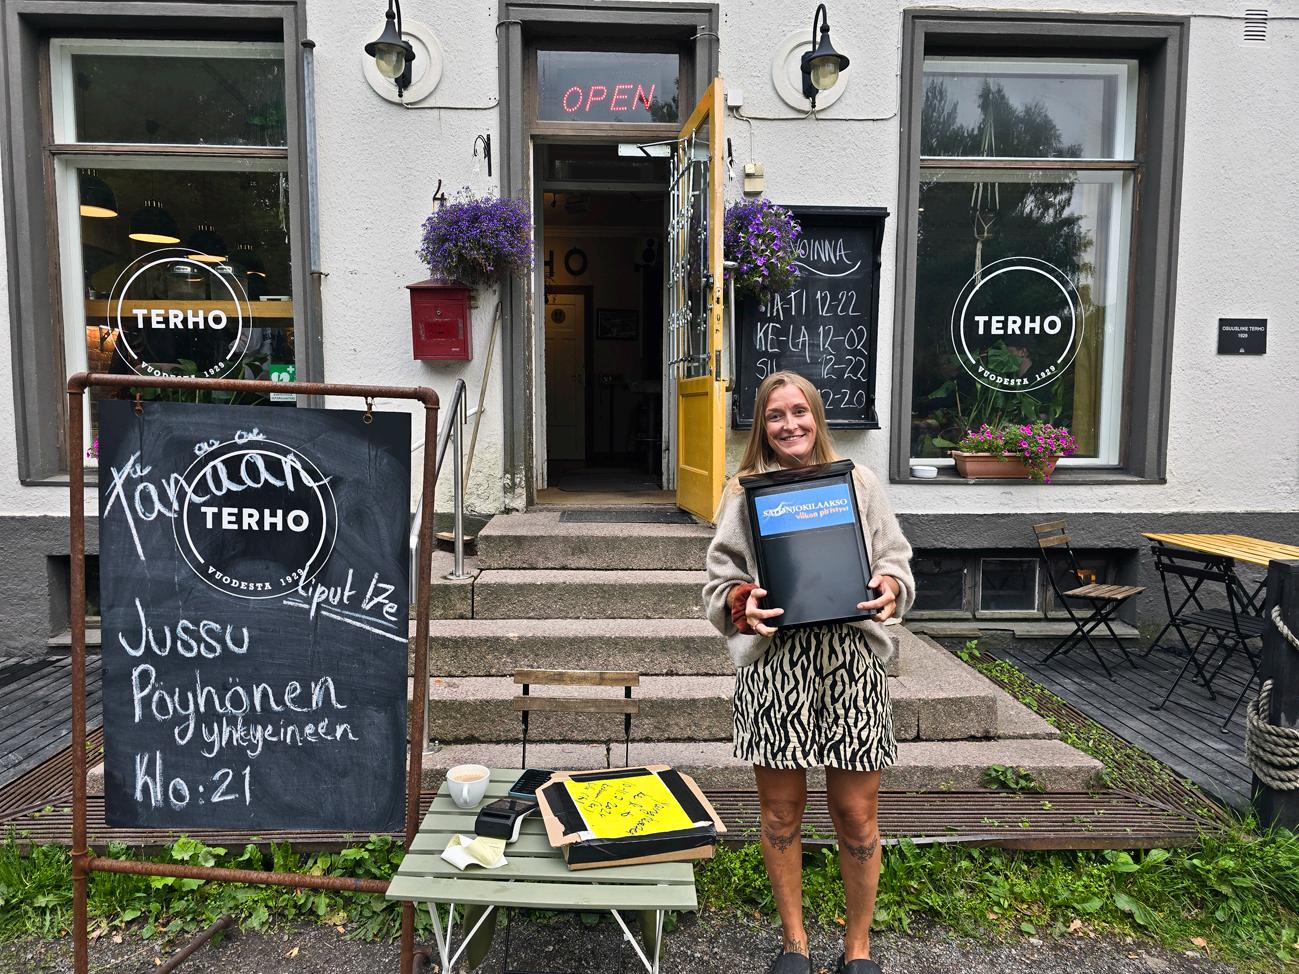 OPEN
TERHO
VUODESTA 1929
HO
VOINNA
MA-TI 12-22
KE-LA 12-02
SU 12-22
12-20
TERHO
VUODESTA 1929
OSUUSLIIKE TERHO
1929
Tänään
TERHO
VUODESTA 1929
Liput 17e
Jussu
Pöyhönen
yhtyeineen
Klo:21
SAVONJOKILAAKSO
viikon piristys!